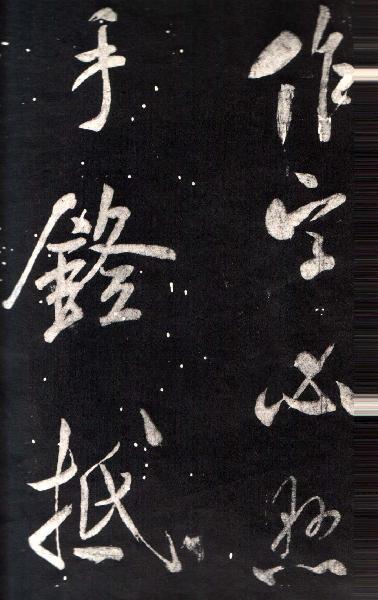 作字必
手鐙抵